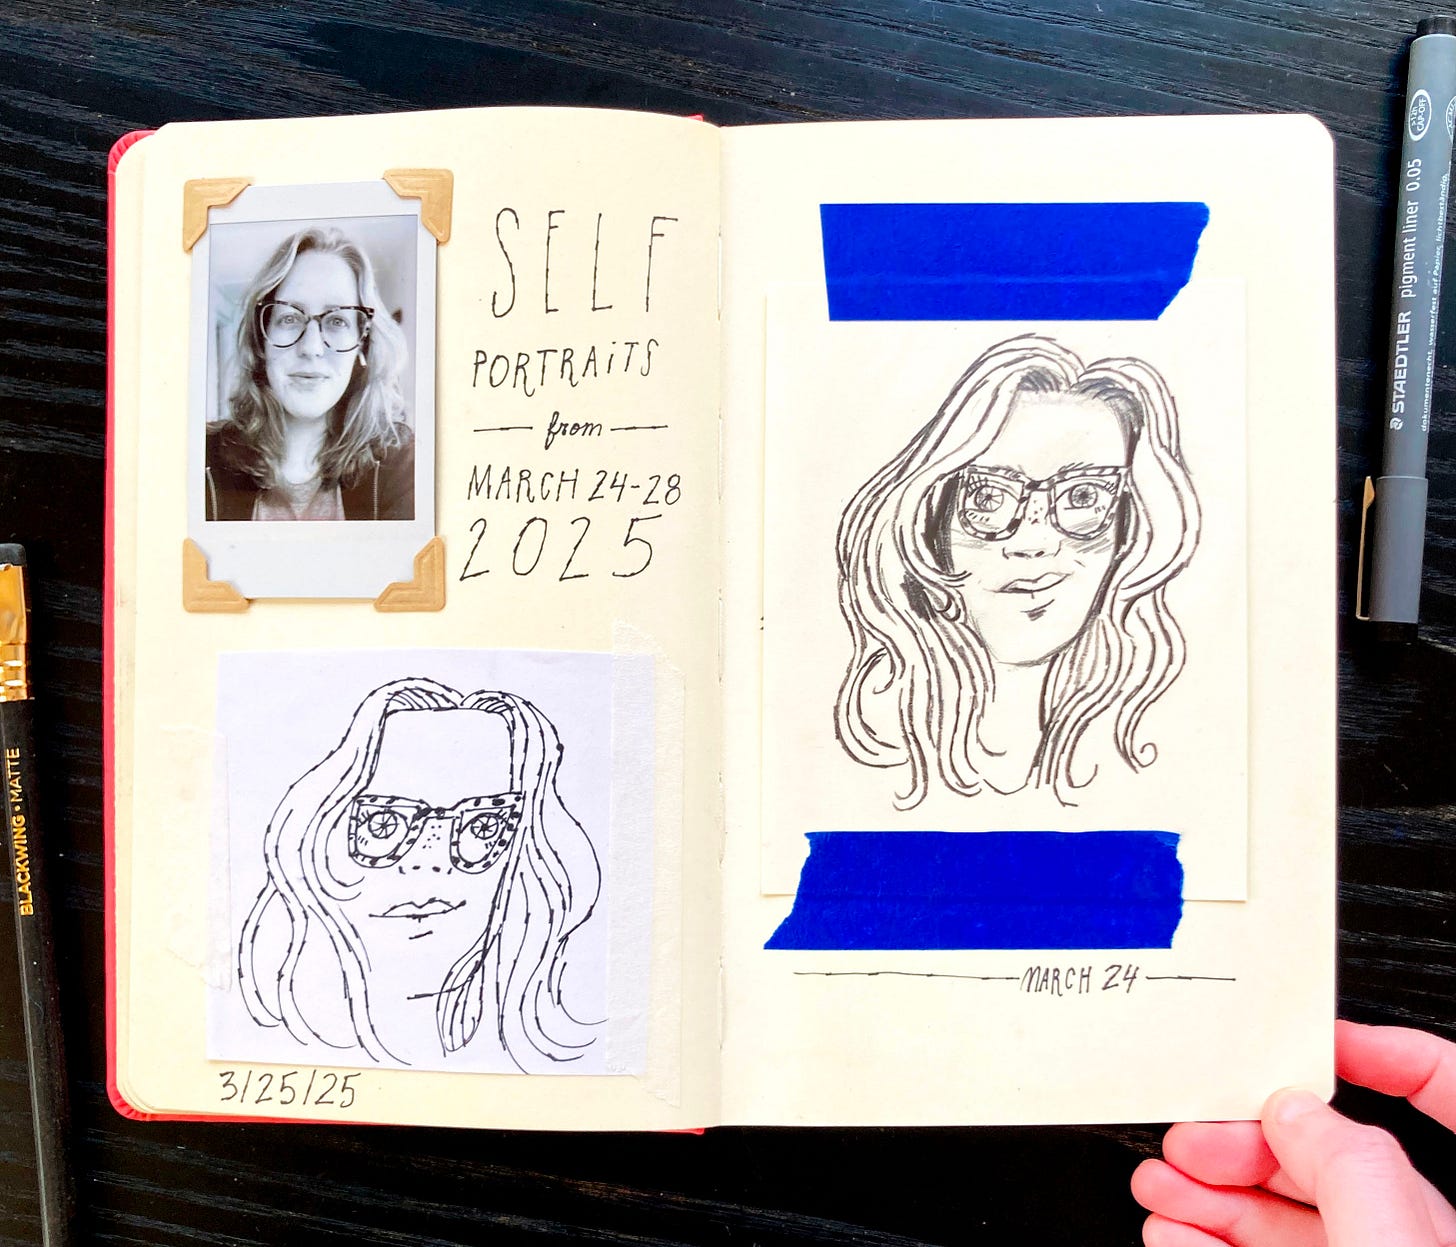 SELF
PORTRAiTS
from
MARCH 24-28
2025
3/25/25
MARCH 24
BLACKWING • MATTE
STAEDTLER pigment liner 0.05
CAP-OFF